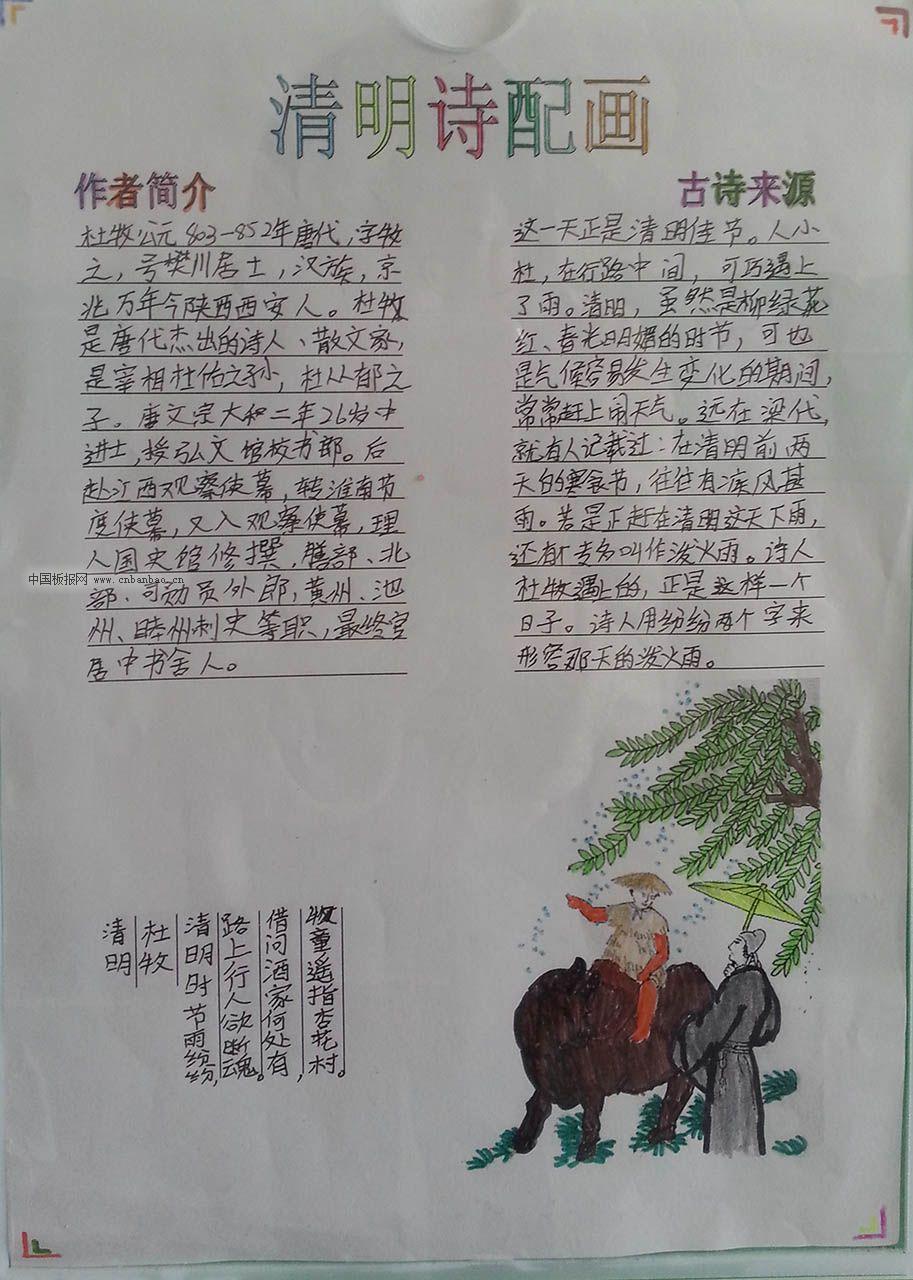 清明诗配画
作者简介
杜牧公元803-852年唐代,字牧
之,号樊川居士,汉族,京
兆万年今陕西西安人。杜牧
是唐代杰出的诗人、散文家,
是宰相杜佑之孙,杜从郁之
子。唐文宗大和二年26岁中
进士,授弘文馆校书郎。后
赴江西观察使幕,转淮南节
度使幕,又入观察使幕,理
人国史馆修撰,膳部、北
部、司勋员外郎,黄州、池
州、睦州刺史等职,最终官
居中书舍人。
古诗来源
这一天正是清明佳节。人小
杜,在行路中间,可巧遇上
了雨。清明,虽然是柳绿花
红、春光明媚的时节,可也
是气候容易发生变化的期间,
常常赶上闹天气。远在梁代,
就有人记载过:在清明前两
天的寒食节,往往有疾风甚
雨。若是正赶在清明这天下雨,
还有个专名叫作泼火雨。诗人
杜牧遇上的,正是这样一个
日子。诗人用纷纷两个字来
形容那天的泼火雨。
中国板报网 www.cnbanbao.cn
清明
杜牧
清明时节雨纷纷,
路上行人欲断魂。
借问酒家何处有,
牧童遥指杏花村。